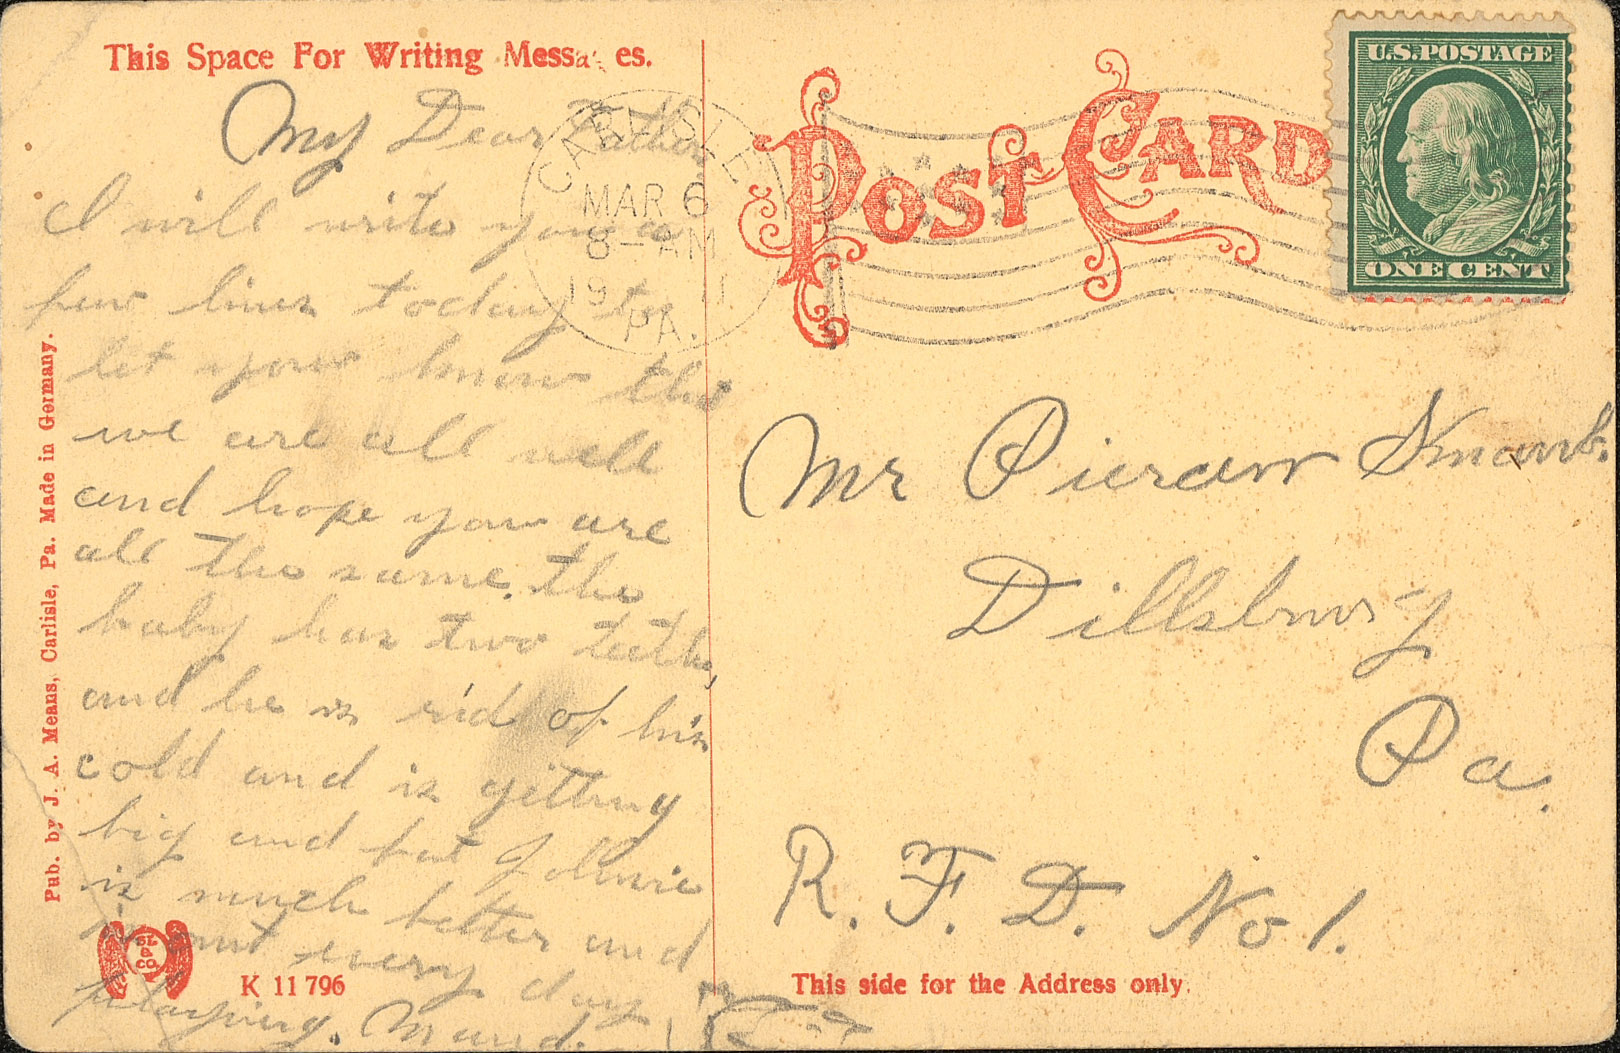 This Space For Writing Messa es.
My Dear Father
I will write you a
few lines today to
let you know that
we are all well
and hope you are
all the same. the
baby has two teeth,
and he is rid of his
cold and is getting
big and fat Johnnie
is much better and
is out every day
playing. Maud.
Pub. by J. A. Means, Carlisle, Pa. Made in Germany.
SL & CO
K 11796
CARLISLE
MAR 6
8-AM
1911
PA.
POST CARD
U.S. POSTAGE
ONE CENT
Mr
Dillsburg
Pa.
R. F. D. No 1.
This side for the Address only.